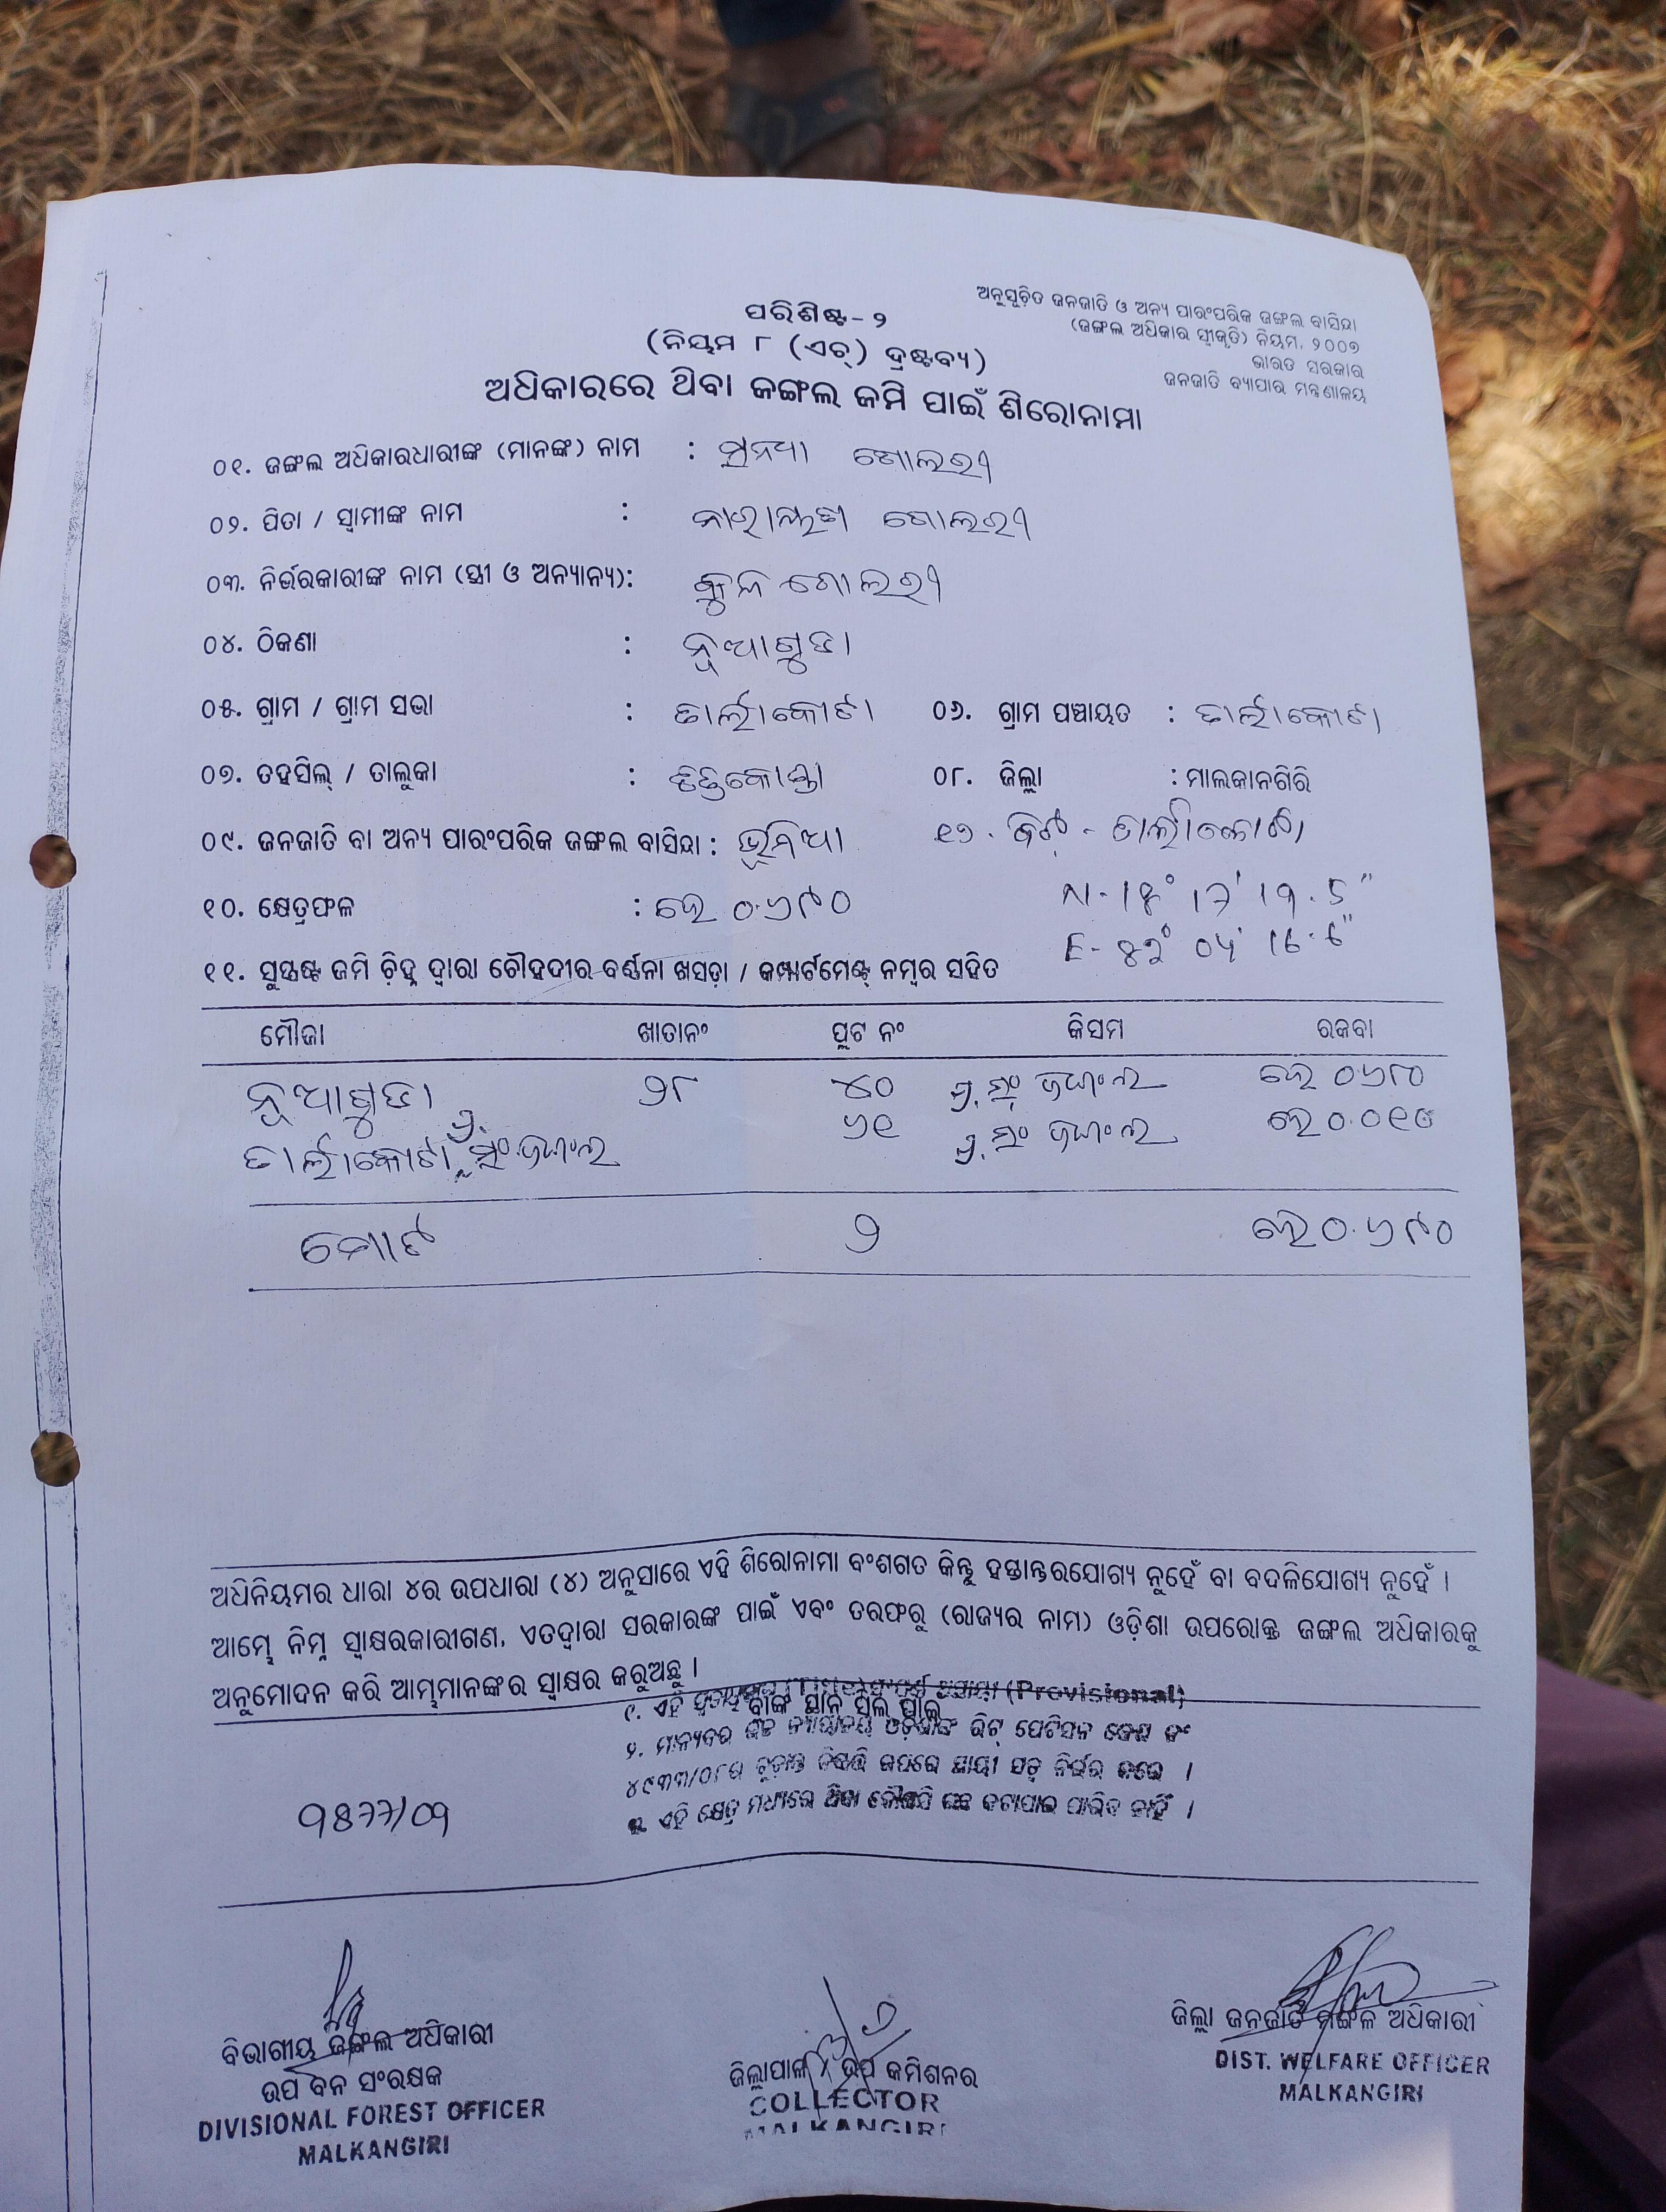 ଅନୁସୂଚିତ ଜନଜାତି ଓ ଅନ୍ୟ ପାରଂପରିକ ଜଙ୍ଗଲ ବାସିନ୍ଦା
(ଜଙ୍ଗଲ ଅଧିକାର ସ୍ୱୀକୃତି) ନିୟମ, ୨୦୦୭
ଭାରତ ସରକାର
ଜନଜାତି ବ୍ୟାପାର ମନ୍ତ୍ରଣାଳୟ
ପରିଶିଷ୍ଟ - ୨
(ନିୟମ ୮ (ଏଚ୍) ଦ୍ରଷ୍ଟବ୍ୟ)
ଅଧିକାରରେ ଥିବା ଜଙ୍ଗଲ ଜମି ପାଇଁ ଶିରୋନାମା
୦୧. ଜଙ୍ଗଲ ଅଧିକାରଧାରୀଙ୍କ (ମାନଙ୍କ) ନାମ :
୦୨. ପିତା / ସ୍ୱାମୀଙ୍କ ନାମ :
୦୩. ନିର୍ଭରକାରୀଙ୍କ ନାମ (ସ୍ତ୍ରୀ ଓ ଅନ୍ୟାନ୍ୟ):
୦୪. ଠିକଣା : ନୂଆଗୁଡା
୦୫. ଗ୍ରାମ / ଗ୍ରାମ ସଭା : ତାର୍ଲାକୋଟା ୦୬. ଗ୍ରାମ ପଞ୍ଚାୟତ : ତାର୍ଲାକୋଟା
୦୭. ତହସିଲ୍ / ତାଲୁକା : ୦୮. ଜିଲ୍ଲା : ମାଲକାନଗିରି
୦୯. ଜନଜାତି ବା ଅନ୍ୟ ପାରଂପରିକ ଜଙ୍ଗଲ ବାସିନ୍ଦା : ଭୂମିଆ ତାର୍ଲାକୋଟା
୧୦. କ୍ଷେତ୍ରଫଳ : ହେ ୦.୬୯୦
N- 18° 17' 19.5"
E- 82° 04' 16.6"
୧୧. ସୁସ୍ପଷ୍ଟ ଜମି ଚିହ୍ନ ଦ୍ୱାରା ଚୌହଦୀର ବର୍ଣ୍ଣନା ଖସଡ଼ା / କମ୍ପାର୍ଟମେଣ୍ଟ୍ ନମ୍ବର ସହିତ
ମୌଜା ଖାତାନଂ ପ୍ଲଟ ନଂ କିସମ ରକବା
ନୂଆଗୁଡା ୨୮ ୪୦ ଜଙ୍ଗଲ ହେ ୦.୬୮୦
ତାର୍ଲାକୋଟା ଜଙ୍ଗଲ ୬୧ ଜଙ୍ଗଲ ହେ ୦.୦୧୦
ମୋଟ ୨ ହେ ୦.୬୯୦
ଅଧିନିୟମର ଧାରା ୪ର ଉପଧାରା (୪) ଅନୁସାରେ ଏହି ଶିରୋନାମା ବଂଶଗତ କିନ୍ତୁ ହସ୍ତାନ୍ତରଯୋଗ୍ୟ ନୁହେଁ ବା ବଦଳିଯୋଗ୍ୟ ନୁହେଁ ।
ଆମ୍ଭେ ନିମ୍ନ ସ୍ୱାକ୍ଷରକାରୀଗଣ, ଏତଦ୍ୱାରା ସରକାରଙ୍କ ପାଇଁ ଏବଂ ତରଫରୁ (ରାଜ୍ୟର ନାମ) ଓଡ଼ିଶା ଉପରୋକ୍ତ ଜଙ୍ଗଲ ଅଧିକାରକୁ
ଅନୁମୋଦନ କରି ଆମ୍ଭମାନଙ୍କର ସ୍ୱାକ୍ଷର କରୁଅଛୁ ।
୧. ଏହି (Title) ସମ୍ପୂର୍ଣ୍ଣ (Provisional)
୨. ମାନ୍ୟବର ଉଚ୍ଚ ନ୍ୟାୟାଳୟ ରିଟ୍ ପେଟିସନ କେଶ ନଂ
୪୯୩୩/୦୮ର ଚୂଡ଼ାନ୍ତ ନିଷ୍ପତ୍ତି ଉପରେ ସ୍ଥାୟୀ ନିର୍ଭର କରେ ।
୩. ଏହି କ୍ଷେତ୍ର ମଧ୍ୟରେ ଥିବା କୌଣସି ଗଛ କଟାଯାଇ ପାରିବ ନାହିଁ ।
ବିଭାଗୀୟ ଜଙ୍ଗଲ ଅଧିକାରୀ
ଉପ ବନ ସଂରକ୍ଷକ
DIVISIONAL FOREST OFFICER
MALKANGIRI
ଜିଲ୍ଲାପାଳ / ଉପ କମିଶନର
COLLECTOR
MALKANGIRI
ଜିଲ୍ଲା ଜନଜାତି ମଙ୍ଗଳ ଅଧିକାରୀ
DIST. WELFARE OFFICER
MALKANGIRI